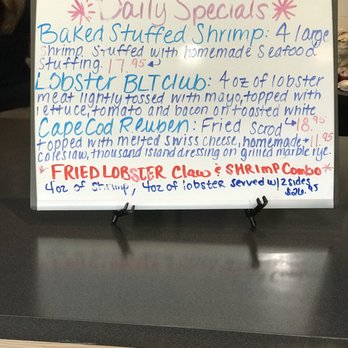 Daily Specials
Baked Stuffed Shrimp: 4 large
shrimp stuffed with homemade seafood
stuffing. 17.95
Lobster BLT Club: 4 oz of lobster
meat lightly tossed with mayo, topped with
lettuce, tomato and bacon on toasted white
Cape Cod Reuben: Fried Scrod 18.95
topped with melted swiss cheese, homemade 11.95
coleslaw, thousand island dressing on grilled marble rye.
FRIED LOBSTER Claw & SHRIMP Combo
4oz of Shrimp, 4oz of lobster served w/2 sides